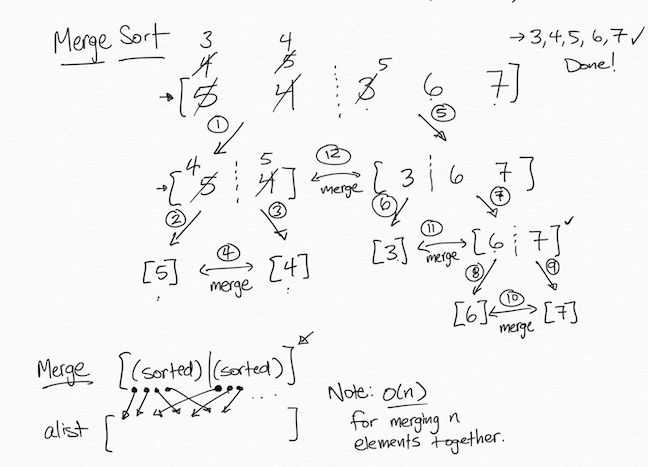 Merge Sort
3 4
4 5 5
→[5 4 ⋮ 3 6 7]
→ 3, 4, 5, 6, 7 ✓
Done!
① ⑤
4 5
→[5 ⋮ 4] ⑫ merge [3 ⋮ 6 7]
② ③ ⑥ ⑦
[5] ④ merge [4]
[3] ⑪ merge [6 ⋮ 7] ✓
⑧ ⑨
[6] ⑩ merge [7]
Merge [(sorted)|(sorted)]
....
alist [ ]
Note: O(n)
for merging n
elements together.